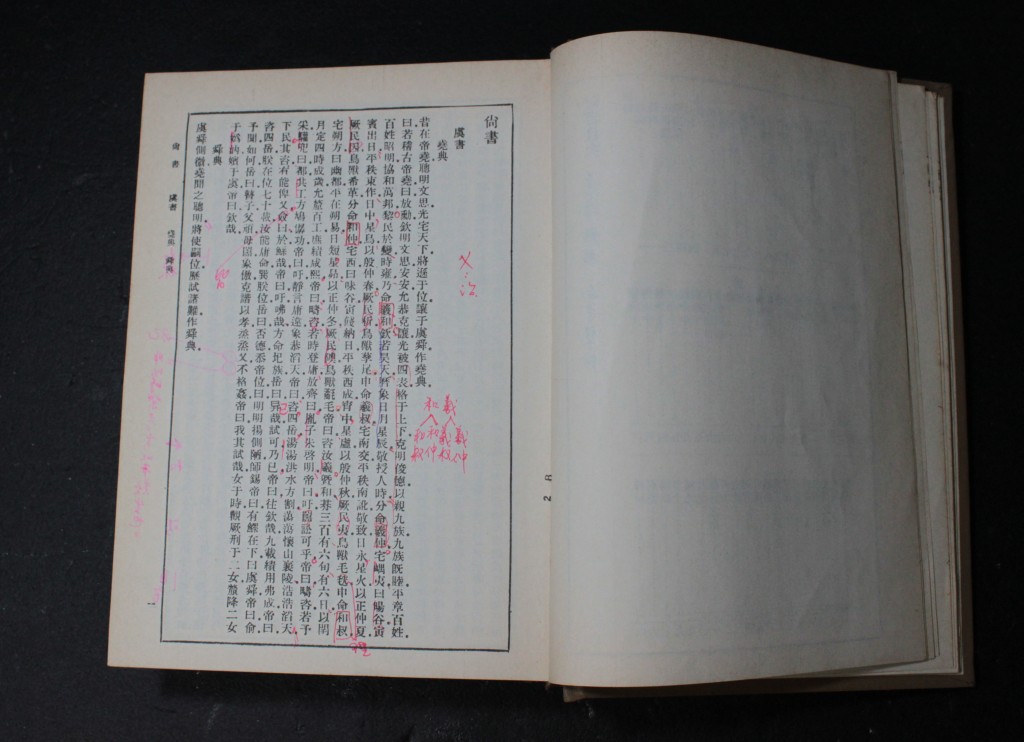 尙書
虞書
堯典
昔在帝堯聰明文思光宅天下將遜于位讓于虞舜作堯典。
曰若稽古帝堯曰放勳欽明文思安安允恭克讓光被四表格于上下克明俊德以親九族九族旣睦平章百姓。
百姓昭明協和萬邦黎民於變時雍乃命羲和欽若昊天曆象日月星辰敬授人時分命羲仲宅嵎夷曰暘谷寅
賓出日平秩東作日中星鳥以殷仲春厥民析鳥獸孳尾申命羲叔宅南交平秩南訛敬致日永星火以正仲夏。
厥民因鳥獸希革分命和仲宅西曰昧谷寅餞納日平秩西成宵中星虛以殷仲秋厥民夷鳥獸毛毨申命和叔
宅朔方曰幽都平在朔易日短星昴以正仲冬厥民隩鳥獸氄毛帝曰咨汝羲暨和朞三百有六旬有六日以閏
月定四時成歲允釐百工庶績咸熙帝曰疇咨若時登庸放齊曰胤子朱啓明帝曰吁嚚訟可乎帝曰疇咨若予
采驩兜曰都共工方鳩僝功帝曰吁靜言庸違象恭滔天帝曰咨四岳湯湯洪水方割蕩蕩懷山襄陵浩浩滔天
下民其咨有能俾乂僉曰於鯀哉帝曰吁咈哉方命圮族岳曰异哉試可乃已帝曰往欽哉九載績用弗成帝曰
咨四岳朕在位七十載汝能庸命巽朕位岳曰否德忝帝位曰明明揚側陋師錫帝曰有鰥在下曰虞舜帝曰俞
予聞如何岳曰瞽子父頑母嚚象傲克諧以孝烝烝乂不格姦帝曰我其試哉女于時觀厥刑于二女釐降二女
于嬀汭嬪于虞帝曰欽哉。
舜典
虞舜側微堯聞之聰明將使嗣位歷試諸難作舜典。
尙書 虞書 堯典 舜典
一
乂:治
羲
羲仲
羲叔
和
和仲
和叔
2 R